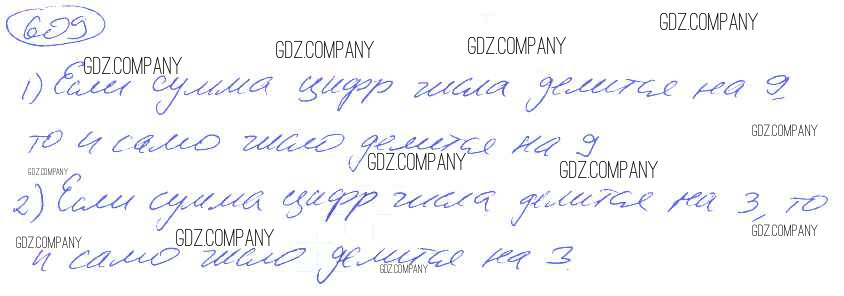 609
GDZ.COMPANY
GDZ.COMPANY
GDZ.COMPANY
GDZ.COMPANY
1) Если сумма цифр числа делится на 9,
то и само число делится на 9
GDZ.COMPANY
GDZ.COMPANY
GDZ.COMPANY
GDZ.COMPANY
2) Если сумма цифр числа делится на 3, то
GDZ.COMPANY
GDZ.COMPANY
GDZ.COMPANY
и само число делится на 3
GDZ.COMPANY